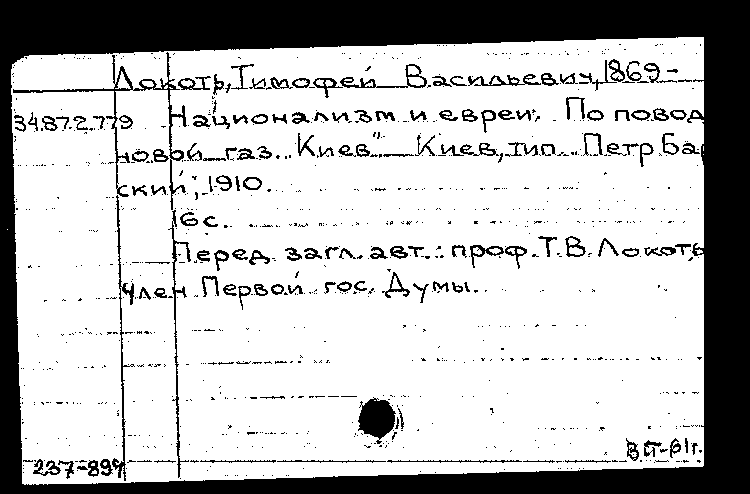 Локоть, Тимофей Васильевич, 1869-
34.87.2.779 Национализм и евреи. По повод
новой газ. „Киев" Киев, тип. Петр Бар
ский, 1910.
16 с.
Перед загл. авт.: проф. Т.В. Локоть
член Первой гос. Думы.
237-89